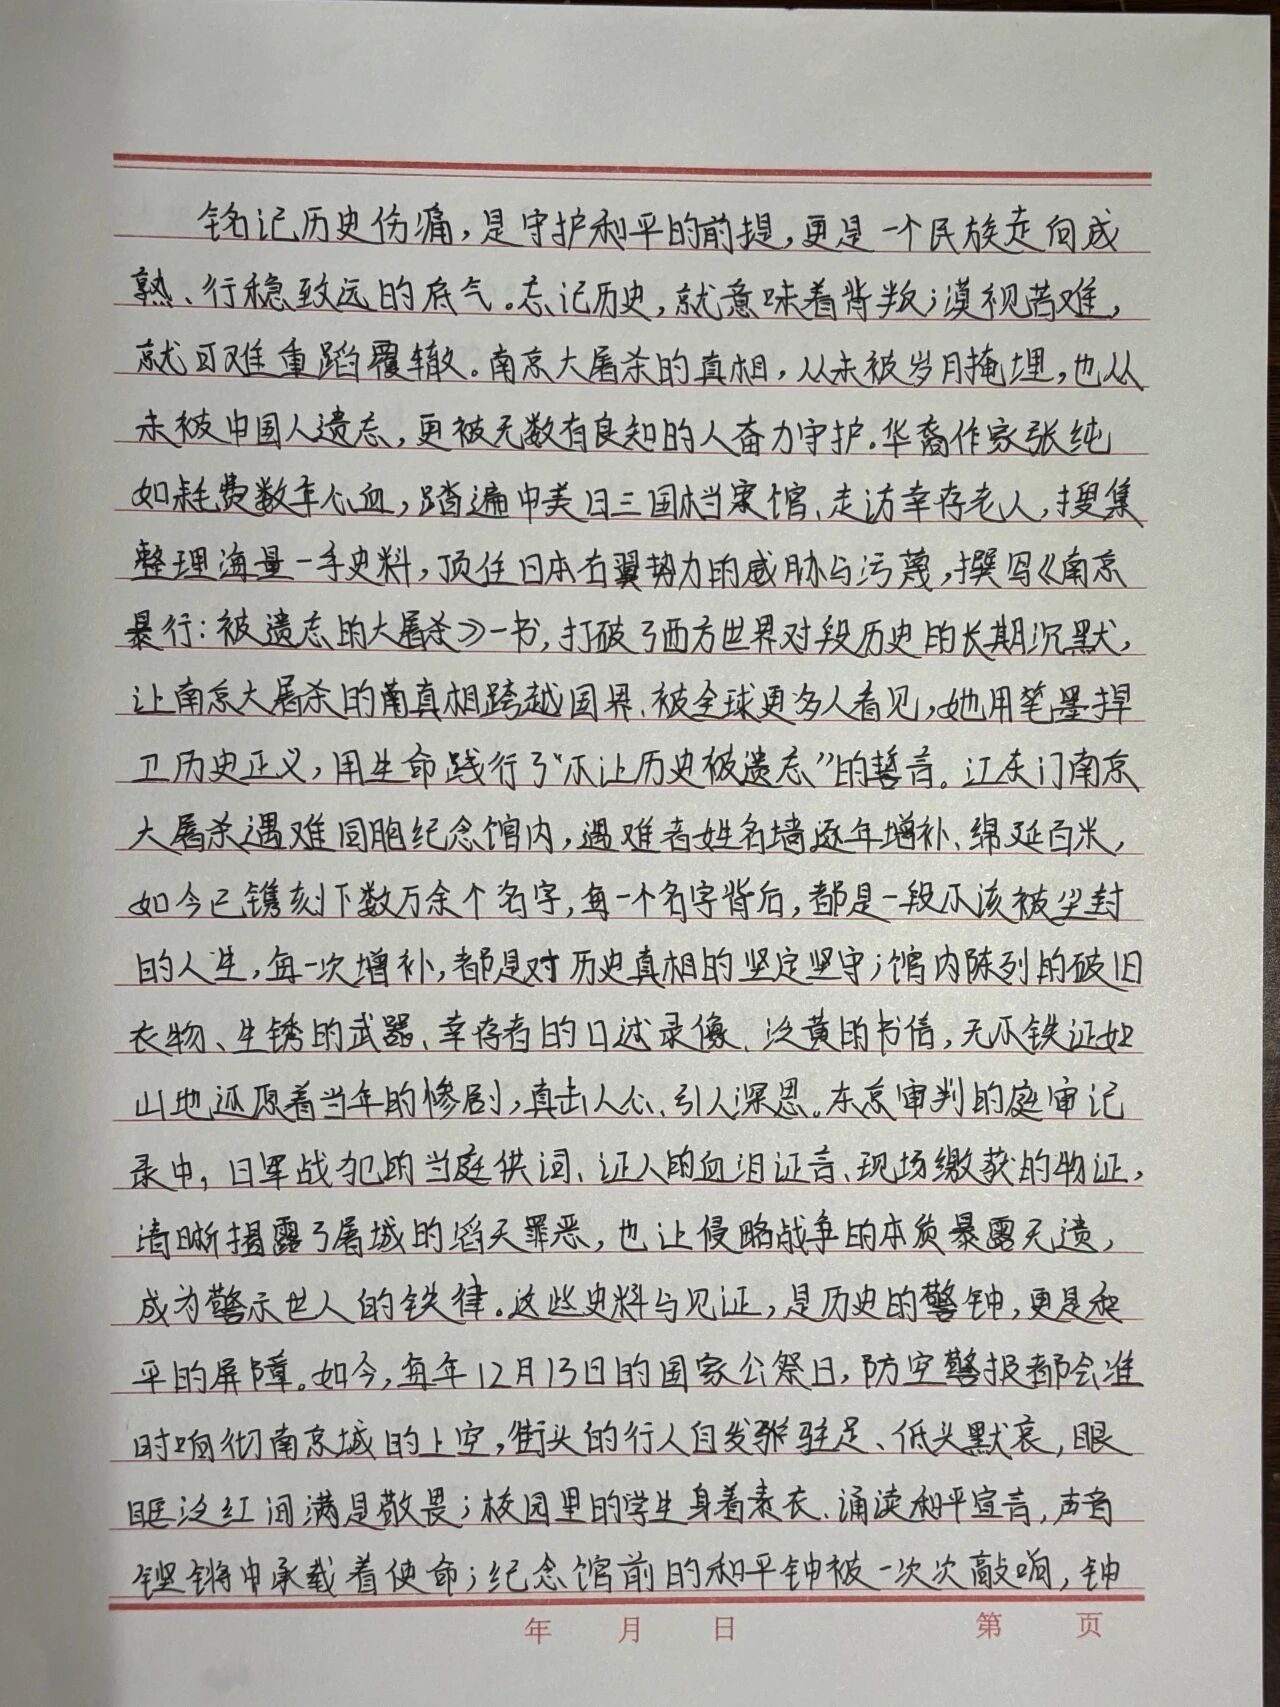 铭记历史伤痛，是守护和平的前提，更是一个民族走向成
熟、行稳致远的底气。忘记历史，就意味着背叛；漠视苦难，
就可难重蹈覆辙。南京大屠杀的真相，从未被岁月掩埋，也从
未被中国人遗忘，更被无数有良知的人奋力守护。华裔作家张纯
如耗费数年心血，踏遍中美日三国档案馆、走访幸存老人，搜集
整理海量一手史料，顶住日本右翼势力的威胁与污蔑，撰写《南京
暴行：被遗忘的大屠杀》一书，打破了西方世界对段历史的长期沉默，
让南京大屠杀的真相跨越国界、被全球更多人看见，她用笔墨捍
卫历史正义，用生命践行了“不让历史被遗忘”的誓言。江东门南京
大屠杀遇难同胞纪念馆内，遇难者姓名墙逐年增补、绵延百米，
如今已镌刻下数万余个名字，每一个名字背后，都是一段不该被尘封
的人生，每一次增补，都是对历史真相的坚定坚守；馆内陈列的破旧
衣物、生锈的武器、幸存者的口述录像、泛黄的书信，无不铁证如
山地还原着当年的惨剧，直击人心、引人深思。东京审判的庭审记
录中，日军战犯的当庭供词、证人的血泪证言、现场缴获的物证，
清晰揭露了屠城的滔天罪恶，也让侵略战争的本质暴露无遗，
成为警示世人的铁律。这些史料与见证，是历史的警钟，更是和
平的屏障。如今，每年12月13日的国家公祭日，防空警报都会准
时响彻南京城的上空，街头的行人自发驻足、低头默哀，眼
眶泛红间满是敬畏；校园里的学生身着素衣、诵读和平宣言，声音
铿锵中承载着使命；纪念馆前的和平钟被一次次敲响，钟
年 月 日 第 页